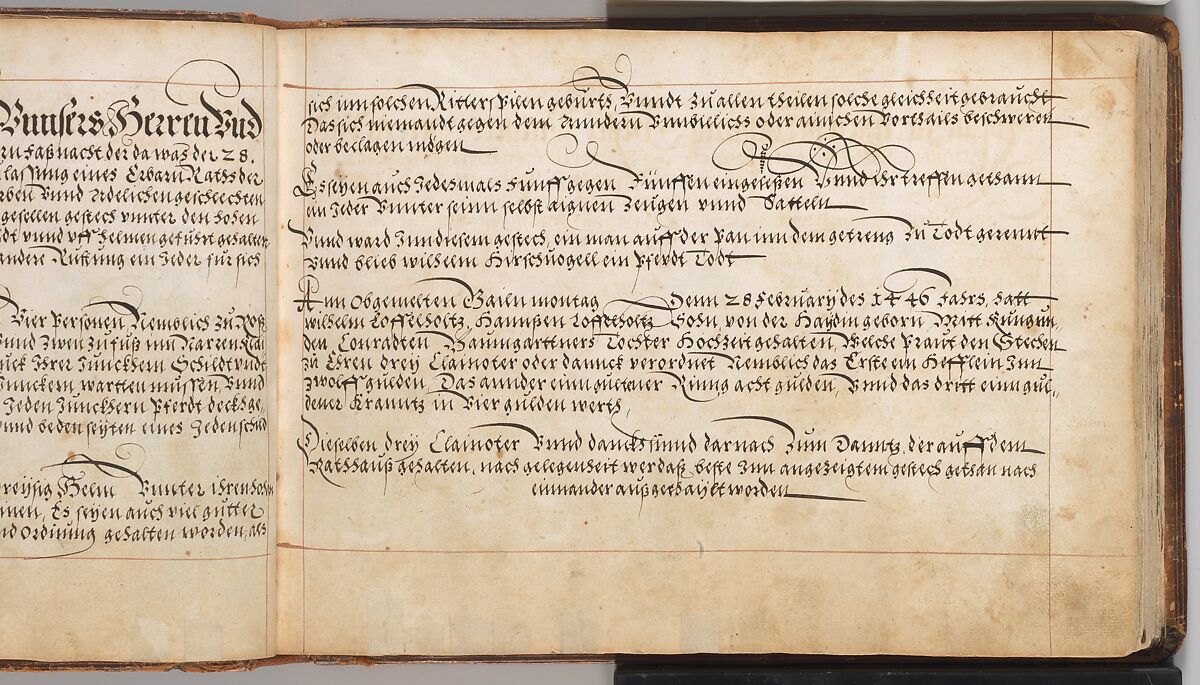 Vnnsers Herren Vnd
rn Faßnacht der da was der 28.
lassung eines Erbarn Raths der
rben Vnnd Adelichen geschlechten
gesellen gestech vnnter den hohen
dt vnnd vff helmen gefuhrt gehalten
andere Rüstung ein Jeder für sich
Vier Personen, Nemblich zu Roß
Vnnd Zwen zu fuß inn Narren Klai
uck Ihrer Junckhern Schildt vnndt
Junckern, wartten müssen Vnnd
Jeden Junckhern Pferdt deckh ge,
vnnd beden seÿten eines Jeden schild
reÿsig Helm Vnnter ihren
inen, Es seÿen auch viel gutter
nd Ordnung gehalten worden, als
sich inn solchen Ritterspilen gebürth, Vnndt zu allen theilen solche gleichheit gebraucht
Das sich niemandt gegen dem Anndern Vnnbillichs oder ainichen Vorthails beschweren
oder beclagen mögen
Es seÿen auch Jedesmals Funff gegen Fünffen eingelassen Vnnd ihr treffen gethann
ein Jeder Vnnter seinn selbst aignen Zeugen vnnd Satteln
Vnnd ward Inn diesem gestech, ein man auff der Pan inn dem getreng zu Todt gerennt
Vnnd blieb wilhelm Hirschuogell ein Pferdt Todt
Ann Obgemelten Gailn montag Denn 28 Februarÿ des 1446 Jahrs, hatt
wilhelm Loffelholtz, Hannßen Loffelholtz Sohn, von der Haÿdin geborn Mitt Kungun,
den, Conradten Baumgartners Tochter Hochzeit gehalten, Welche Praut den Stechern
zu Ehren dreÿ Clainoter oder dannck verordnet Nemblich das Erste ein Hefftlein Inn
zwölff gulden, Das annder einn gultener Rinng acht gulden, Vnnd das dritt einn gul,
dener Kranntz in Vier gulden werth,
Dieselben dreÿ Clainoter Vnnd danckh sinnd darnach zum Danntz, der auff dem
Rathhauß gehalten, nach gelegenheit wer daß beste Inn angezeigtem gestech gethan nach
einnander außgethaÿlt worden